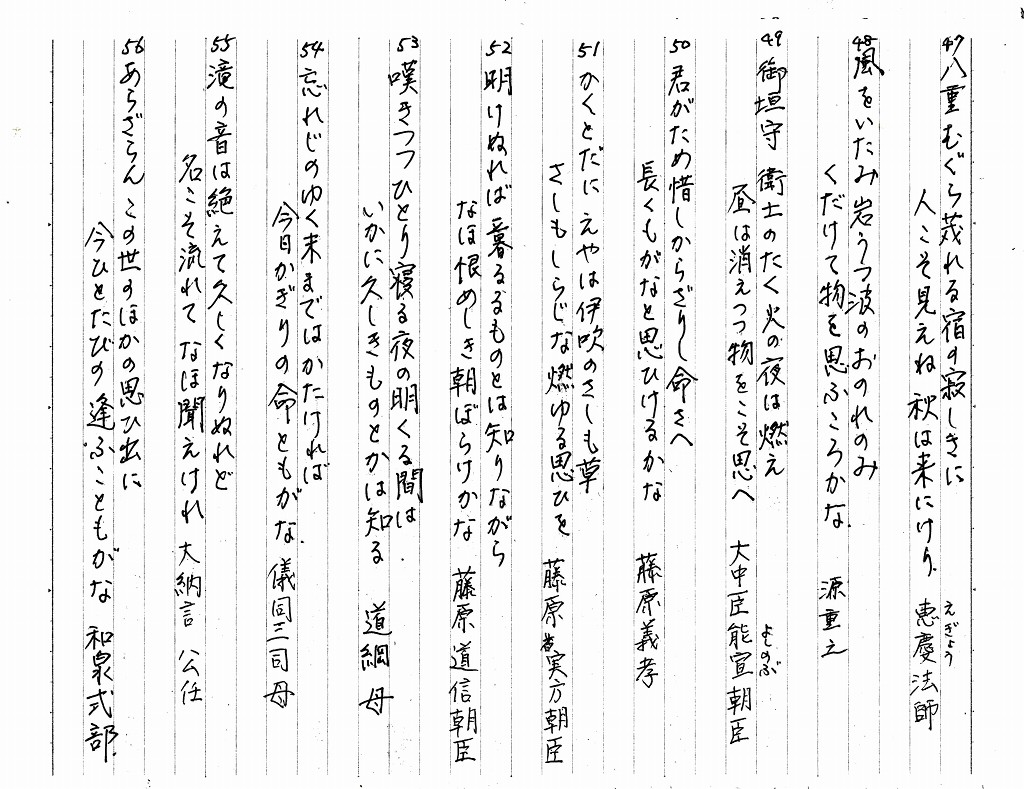 47 八重むぐら茂れる宿の寂しきに
人こそ見えね 秋は来にけり 恵慶法師
えぎょう
48 風をいたみ岩うつ波のおのれのみ
くだけて物を思ふころかな 源重之
49 御垣守 衛士のたく火の夜は燃え
昼は消えつつ物をこそ思へ 大中臣能宣朝臣
よしのぶ
50 君がため惜しからざりし命さへ
長くもがなと思ひけるかな 藤原義孝
51 かくとだに えやは伊吹のさしも草
さしもしらじな燃ゆる思ひを 藤原実方朝臣
52 明けぬれば暮るるものとは知りながら
なほ恨めしき朝ぼらけかな 藤原道信朝臣
53 嘆きつつひとり寝る夜の明くる間は
いかに久しきものとかは知る 道綱母
54 忘れじのゆく末まではかたければ
今日かぎりの命ともがな 儀同三司母
55 滝の音は絶えて久しくなりぬれど
名こそ流れて なほ聞えけれ 大納言 公任
56 あらざらん この世のほかの思ひ出に
今ひとたびの逢ふこともがな 和泉式部